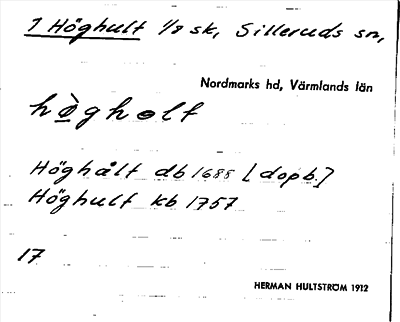 1 Höghult 1/8 sk, Silleruds sn,
Nordmarks hd, Värmlands län
hø̀ghɵlt
Höghålt db 1688 [dopb.]
Höghult kb 1757
17
HERMAN HULTSTRÖM 1912